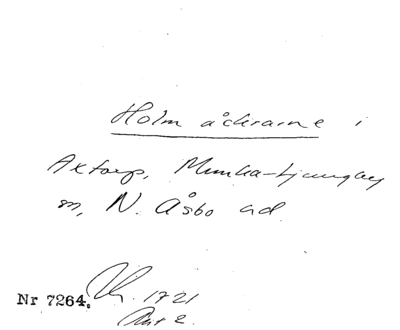 Holm åckrarne i
Axtorp, Munka-Ljungby
sn, N. Åsbo hd.
Nr 7264. 1721
Akt 2